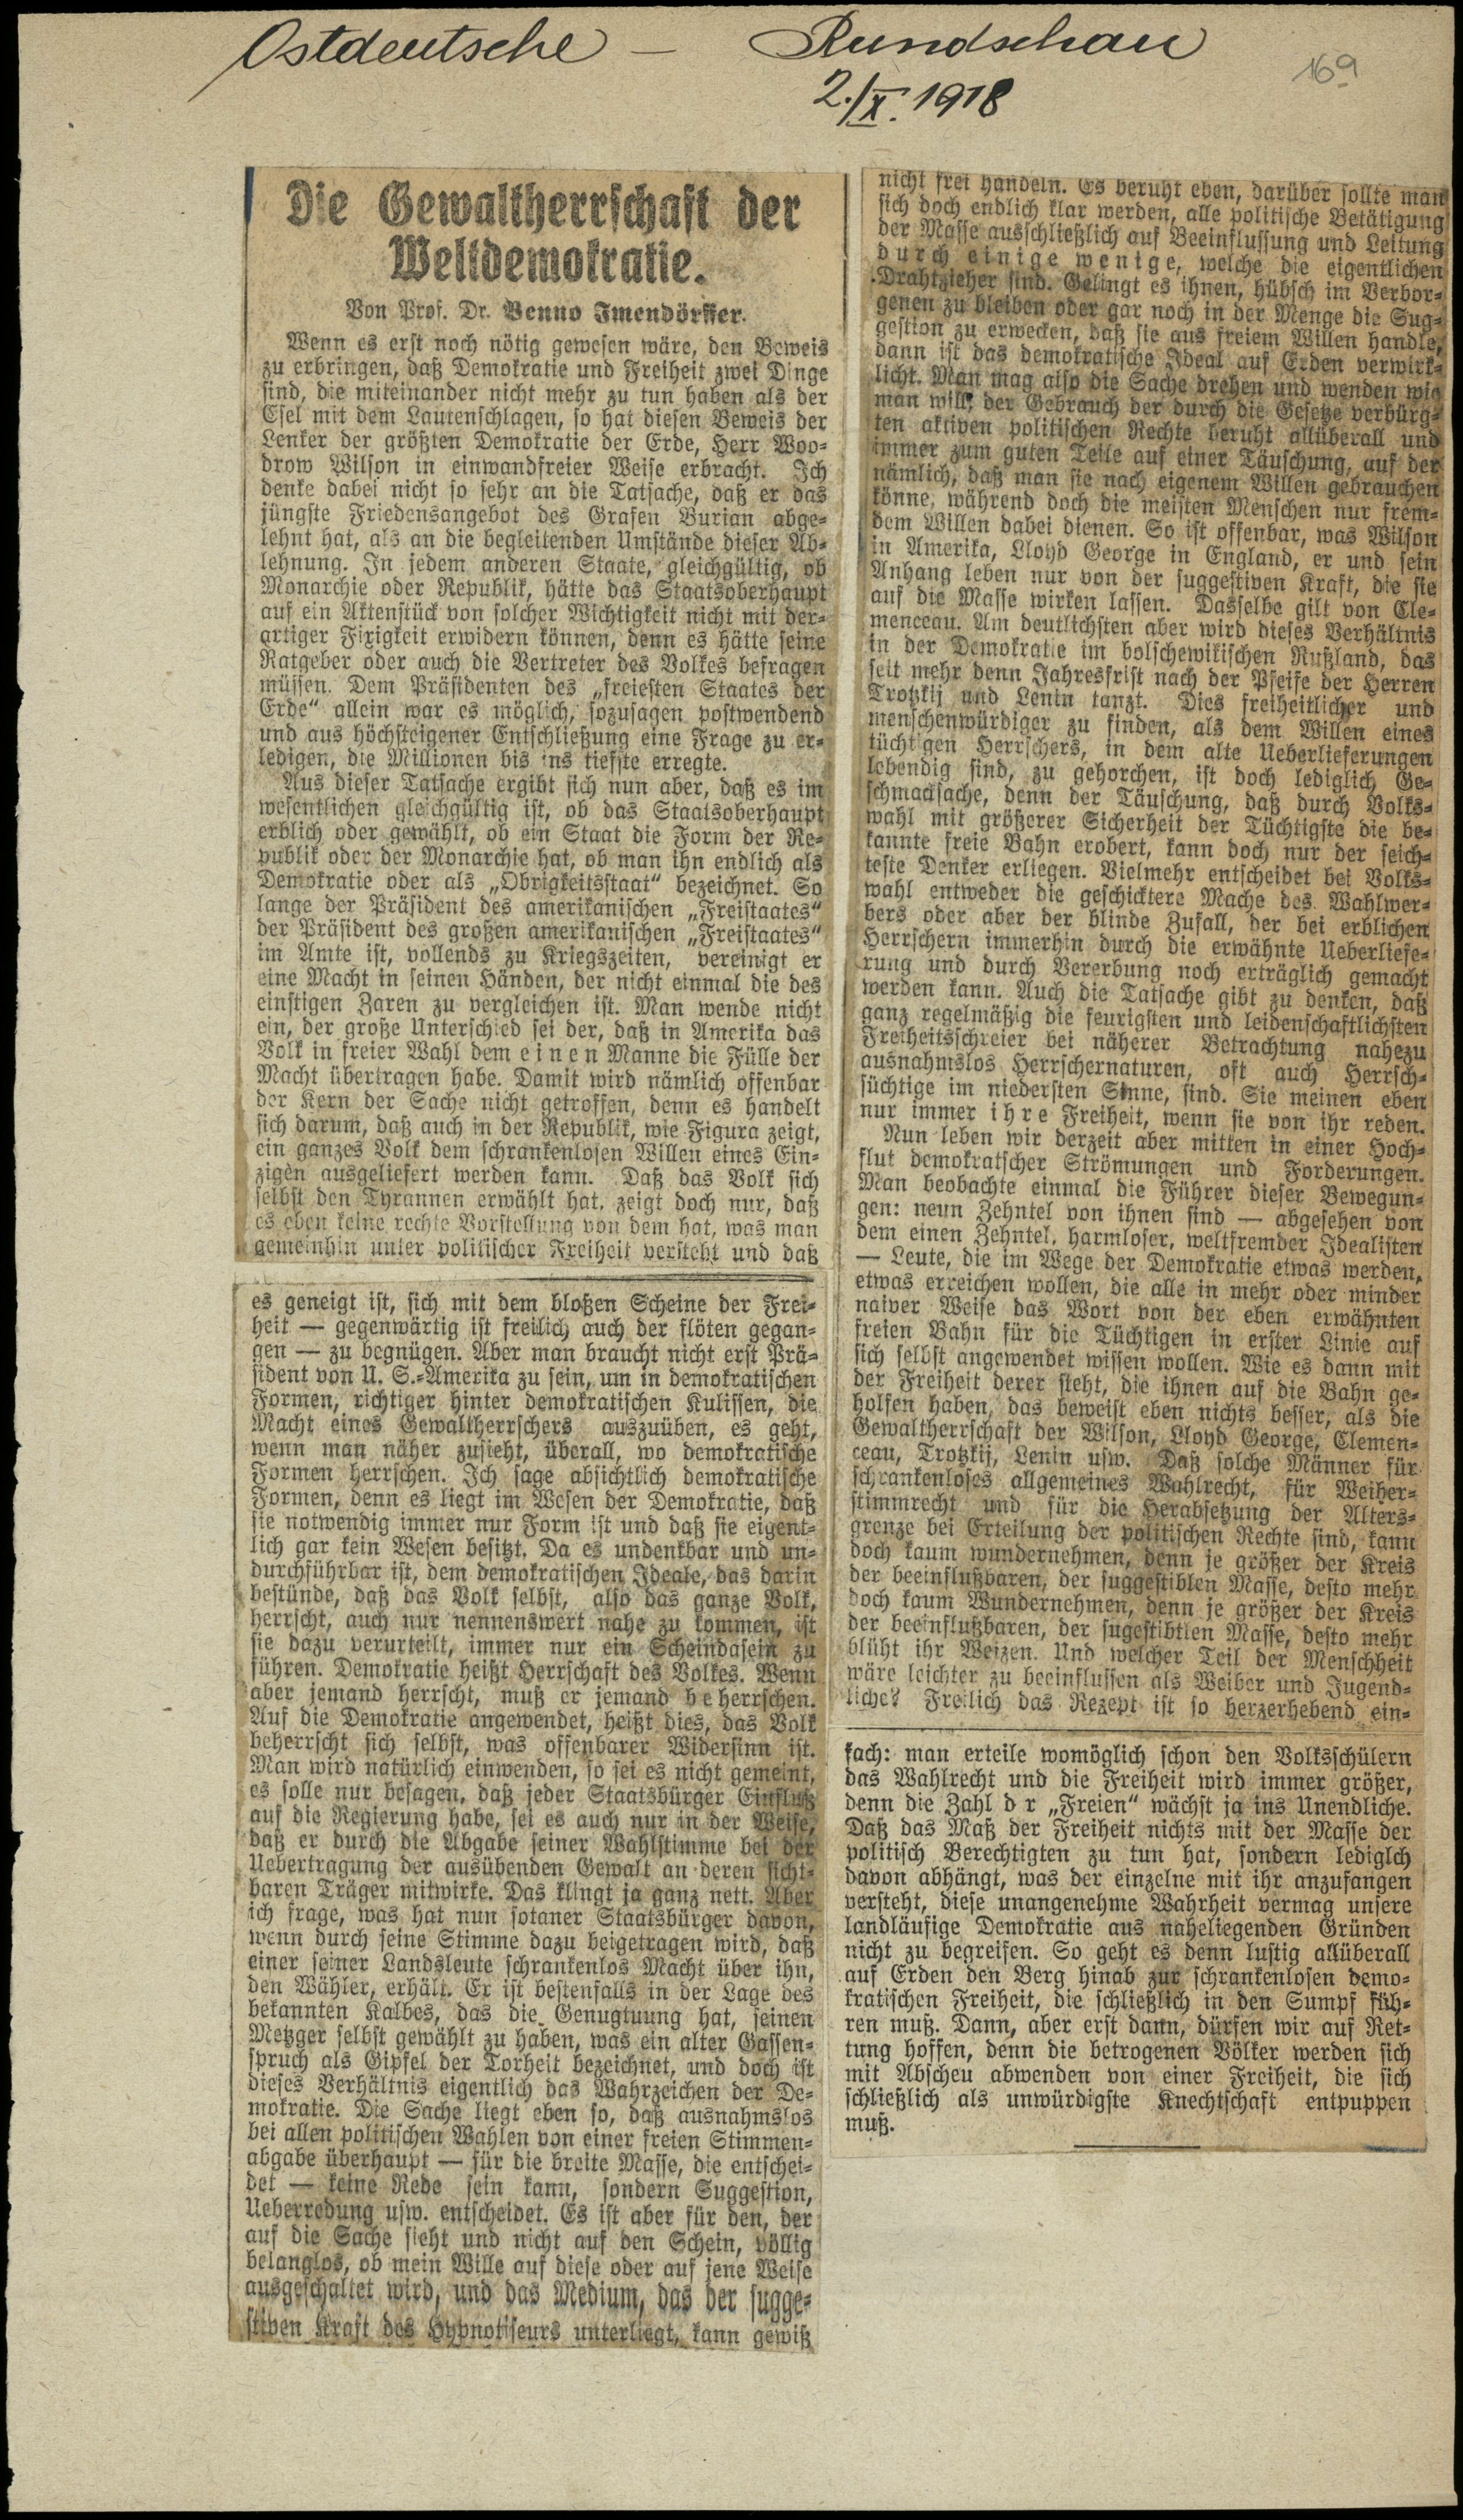 Ostdeutsche — Rundschau
169
2./X. 1918
Die Gewaltherrschaft der
Weltdemokratie.
Von Prof. Dr. Benno Imendörffer.
Wenn es erst noch nötig gewesen wäre, den Beweis
zu erbringen, daß Demokratie und Freiheit zwei Dinge
sind, die miteinander nicht mehr zu tun haben als der
Esel mit dem Lautenschlagen, so hat diesen Beweis der
Lenker der größten Demokratie der Erde, Herr Woo-
drow Wilson in einwandfreier Weise erbracht. Ich
denke dabei nicht so sehr an die Tatsache, daß er das
jüngste Friedensangebot des Grafen Burian abge-
lehnt hat, als an die begleitenden Umstände dieser Ab-
lehnung. In jedem anderen Staate, gleichgültig, ob
Monarchie oder Republik, hätte das Staatsoberhaupt
auf ein Aktenstück von solcher Wichtigkeit nicht mit der-
artiger Fixigkeit erwidern können, denn es hätte seine
Ratgeber oder auch die Vertreter des Volkes befragen
müssen. Dem Präsidenten des „freiesten Staates der
Erde“ allein war es möglich, sozusagen postwendend
und aus höchsteigener Entschließung eine Frage zu er-
ledigen, die Millionen bis ins tiefste erregte.
Aus dieser Tatsache ergibt sich nun aber, daß es im
wesentlichen gleichgültig ist, ob das Staatsoberhaupt
erblich oder gewählt, ob ein Staat die Form der Re-
publik oder der Monarchie hat, ob man ihn endlich als
Demokratie oder als „Obrigkeitsstaat“ bezeichnet. So
lange der Präsident des amerikanischen „Freistaates“
der Präsident des großen amerikanischen „Freistaates“
im Amte ist, vollends zu Kriegszeiten, vereinigt er
eine Macht in seinen Händen, der nicht einmal die des
einstigen Zaren zu vergleichen ist. Man wende nicht
ein, der große Unterschied sei der, daß in Amerika das
Volk in freier Wahl dem einen Manne die Fülle der
Macht übertragen habe. Damit wird nämlich offenbar
der Kern der Sache nicht getroffen, denn es handelt
sich darum, daß auch in der Republik, wie Figura zeigt,
ein ganzes Volk dem schrankenlosen Willen eines Ein-
zigen ausgeliefert werden kann. Daß das Volk sich
selbst den Tyrannen erwählt hat, zeigt doch nur, daß
es eben keine rechte Vorstellung von dem hat, was man
gemeinhin unter politischer Freiheit versteht und daß
es geneigt ist, sich mit dem bloßen Scheine der Frei-
heit — gegenwärtig ist freilich auch der flöten gegan-
gen — zu begnügen. Aber man braucht nicht erst Prä-
sident von U. S.-Amerika zu sein, um in demokratischen
Formen, richtiger hinter demokratischen Kulissen, die
Macht eines Gewaltherrschers auszuüben, es geht,
wenn man näher zusieht, überall, wo demokratische
Formen herrschen. Ich sage absichtlich demokratische
Formen, denn es liegt im Wesen der Demokratie, daß
sie notwendig immer nur Form ist und daß sie eigent-
lich gar kein Wesen besitzt. Da es undenkbar und un-
durchführbar ist, dem demokratischen Ideale, das darin
bestünde, daß das Volk selbst, also das ganze Volk,
herrscht, auch nur nennenswert nahe zu kommen, ist
sie dazu verurteilt, immer nur ein Scheindasein zu
führen. Demokratie heißt Herrschaft des Volkes. Wenn
aber jemand herrscht, muß er jemand beherrschen.
Auf die Demokratie angewendet, heißt dies, das Volk
beherrscht sich selbst, was offenbarer Widersinn ist.
Man wird natürlich einwenden, so sei es nicht gemeint,
es solle nur besagen, daß jeder Staatsbürger Einfluß
auf die Regierung habe, sei es auch nur in der Weise,
daß er durch die Abgabe seiner Wahlstimme bei der
Uebertragung der ausübenden Gewalt an deren sicht-
baren Träger mitwirke. Das klingt ja ganz nett. Aber
ich frage, was hat nun sotaner Staatsbürger davon,
wenn durch seine Stimme dazu beigetragen wird, daß
einer seiner Landsleute schrankenlos Macht über ihn,
den Wähler, erhält. Er ist bestenfalls in der Lage des
bekannten Kalbes, das die Genugtuung hat, seinen
Metzger selbst gewählt zu haben, was ein alter Gassen-
spruch als Gipfel der Torheit bezeichnet, und doch ist
dieses Verhältnis eigentlich das Wahrzeichen der De-
mokratie. Die Sache liegt eben so, daß ausnahmslos
bei allen politischen Wahlen von einer freien Stimmen-
abgabe überhaupt — für die breite Masse, die entschei-
det — keine Rede sein kann, sondern Suggestion,
Ueberredung usw. entscheidet. Es ist aber für den, der
auf die Sache sieht und nicht auf den Schein, völlig
belanglos, ob mein Wille auf diese oder auf jene Weise
ausgeschaltet wird, und das Medium, das der sugge-
stiven Kraft des Hypnotiseurs unterliegt, kann gewiß
nicht frei handeln. Es beruht eben, darüber sollte man
sich doch endlich klar werden, alle politische Betätigung
der Masse ausschließlich auf Beeinflussung und Leitung
durch einige wenige, welche die eigentlichen
Drahtzieher sind. Gelingt es ihnen, hübsch im Verbor-
genen zu bleiben oder gar noch in der Menge die Sug-
gestion zu erwecken, daß sie aus freiem Willen handle,
dann ist das demokratische Ideal auf Erden verwirk-
licht. Man mag also die Sache drehen und wenden wie
man will, der Gebrauch der durch die Gesetze verbürg-
ten aktiven politischen Rechte beruht allüberall und
immer zum guten Teile auf einer Täuschung, auf der
nämlich, daß man sie nach eigenem Willen gebrauchen
könne, während doch die meisten Menschen nur frem-
dem Willen dabei dienen. So ist offenbar, was Wilson
in Amerika, Lloyd George in England, er und sein
Anhang leben nur von der suggestiven Kraft, die sie
auf die Masse wirken lassen. Dasselbe gilt von Cle-
menceau. Am deutlichsten aber wird dieses Verhältnis
in der Demokratie im bolschewikischen Rußland, das
seit mehr denn Jahresfrist nach der Pfeife der Herren
Trotzkij und Lenin tanzt. Dies freiheitlicher und
menschenwürdiger zu finden, als dem Willen eines
tüchtigen Herrschers, in dem alte Ueberlieferungen
lebendig sind, zu gehorchen, ist doch lediglich Ge-
schmacksache, denn der Täuschung, daß durch Volks-
wahl mit größerer Sicherheit der Tüchtigste die be-
kannte freie Bahn erobert, kann doch nur der seich-
teste Denker erliegen. Vielmehr entscheidet bei Volks-
wahl entweder die geschicktere Mache des Wahlwer-
bers oder aber der blinde Zufall, der bei erblichen
Herrschern immerhin durch die erwähnte Ueberliefe-
rung und durch Vererbung noch erträglich gemacht
werden kann. Auch die Tatsache gibt zu denken, daß
ganz regelmäßig die feurigsten und leidenschaftlichsten
Freiheitsschreier bei näherer Betrachtung nahezu
ausnahmslos Herrschernaturen, oft auch Herrsch-
süchtige im niedersten Sinne, sind. Sie meinen eben
nur immer ihre Freiheit, wenn sie von ihr reden.
Nun leben wir derzeit aber mitten in einer Hoch-
flut demokratscher Strömungen und Forderungen.
Man beobachte einmal die Führer dieser Bewegun-
gen: neun Zehntel von ihnen sind — abgesehen von
dem einen Zehntel, harmloser, weltfremder Idealisten
— Leute, die im Wege der Demokratie etwas werden,
etwas erreichen wollen, die alle in mehr oder minder
naiver Weise das Wort von der eben erwähnten
freien Bahn für die Tüchtigen in erster Linie auf
sich selbst angewendet wissen wollen. Wie es dann mit
der Freiheit derer steht, die ihnen auf die Bahn ge-
holfen haben, das beweist eben nichts besser, als die
Gewaltherrschaft der Wilson, Lloyd George, Clemen-
ceau, Trotzkij, Lenin usw. Daß solche Männer für
schrankenloses allgemeines Wahlrecht, für Weiber-
stimmrecht und für die Herabsetzung der Alters-
grenze bei Erteilung der politischen Rechte sind, kann
doch kaum wundernehmen, denn je größer der Kreis
der beeinflußbaren, der suggestiblen Masse, desto mehr
doch kaum Wundernehmen, denn je größer der Kreis
der beeinflußbaren, der sugestibtlen Masse, desto mehr
blüht ihr Weizen. Und welcher Teil der Menschheit
wäre leichter zu beeinflussen als Weiber und Jugend-
liche? Freilich das Rezept ist so herzerhebend ein-
fach: man erteile womöglich schon den Volksschülern
das Wahlrecht und die Freiheit wird immer größer,
denn die Zahl d r „Freien“ wächst ja ins Unendliche.
Daß das Maß der Freiheit nichts mit der Masse der
politisch Berechtigten zu tun hat, sondern lediglch
davon abhängt, was der einzelne mit ihr anzufangen
versteht, diese unangenehme Wahrheit vermag unsere
landläufige Demokratie aus naheliegenden Gründen
nicht zu begreifen. So geht es denn lustig allüberall
auf Erden den Berg hinab zur schrankenlosen demo-
kratischen Freiheit, die schließlich in den Sumpf füh-
ren muß. Dann, aber erst dann, dürfen wir auf Ret-
tung hoffen, denn die betrogenen Völker werden sich
mit Abscheu abwenden von einer Freiheit, die sich
schließlich als unwürdigste Knechtschaft entpuppen
muß.